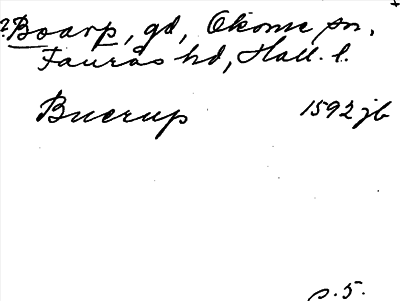 ? Boarp, gd, Okome sn,
Faurås hd, Hall. l.
Buerup 1592 jb
s. 5.